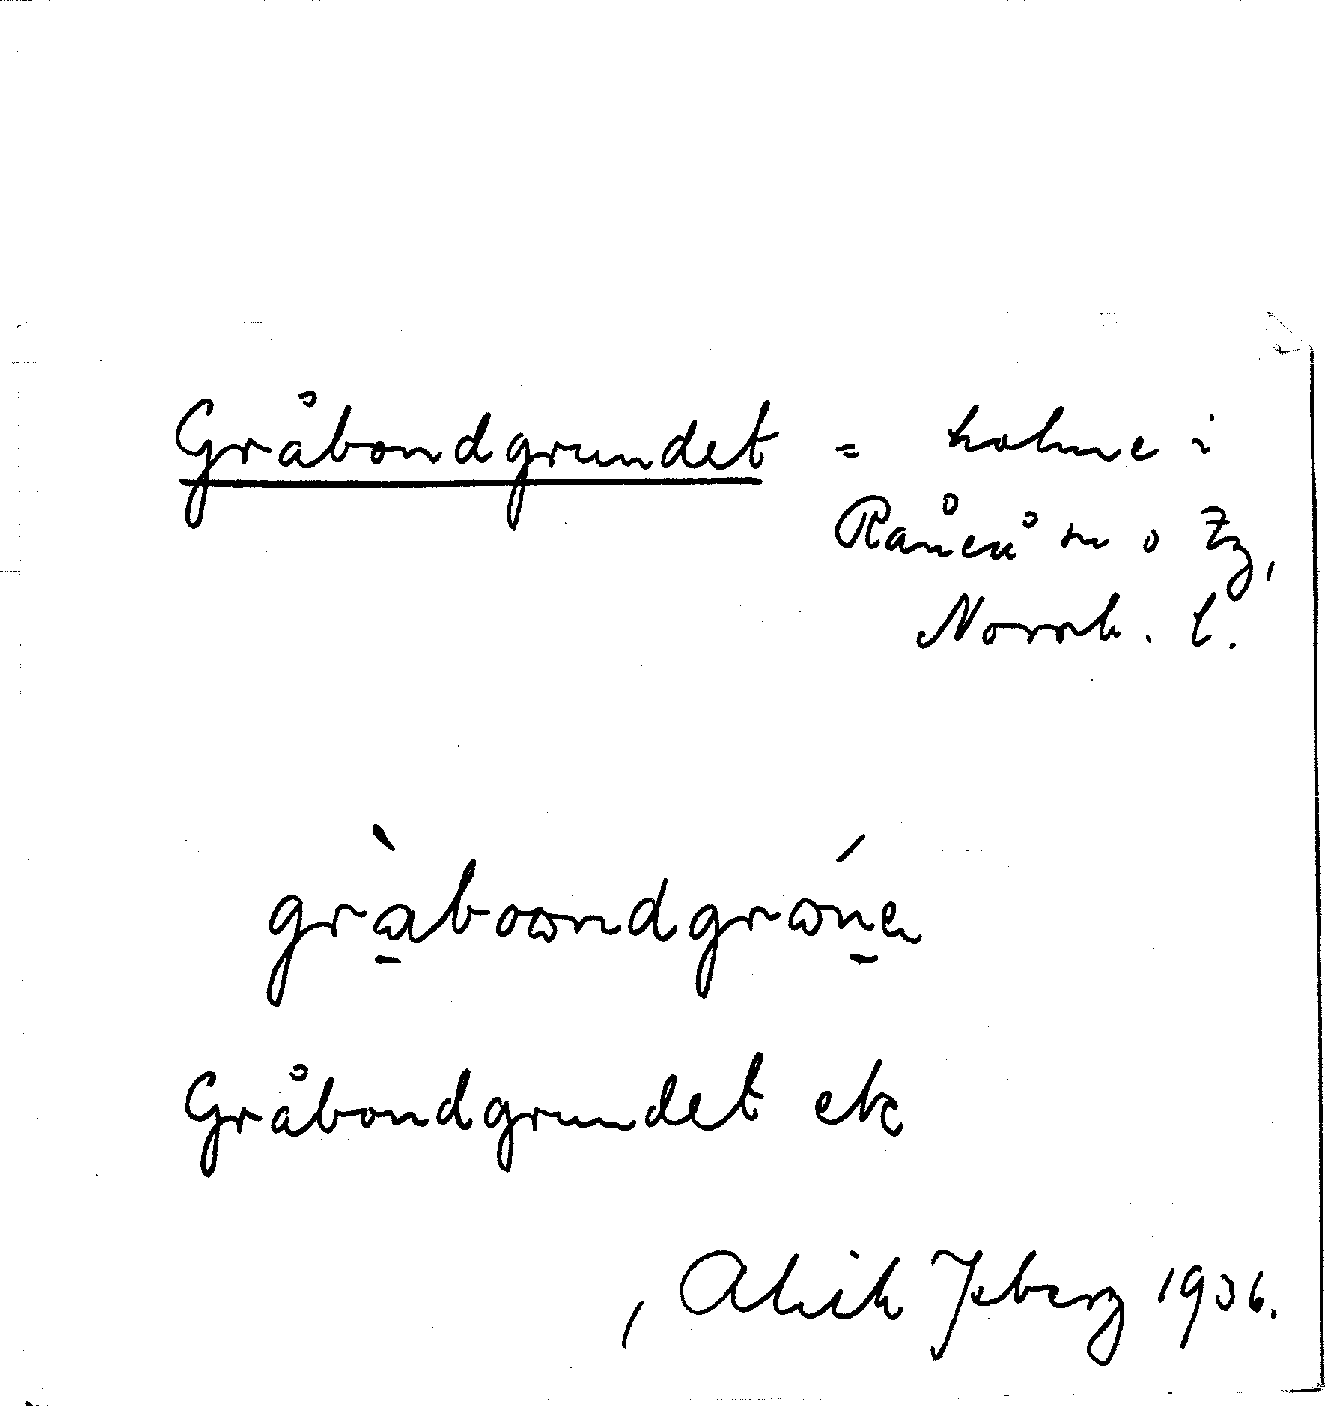 Gråbondgrundet = holme i
Råneå sn o Zg,
Norrb. l.
Gråbondgrundet ek
Alrik Isberg 1936.